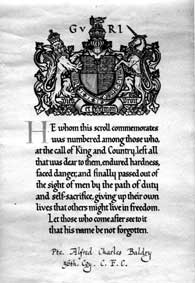 GVRI
HE whom this scroll commemorates
was numbered among those who,
at the call of King and Country, left all
that was dear to them, endured hardness,
faced danger, and finally passed out of
the sight of men by the path of duty
and self-sacrifice, giving up their own
lives that others might live in freedom.
Let those who come after see to it
that his name be not forgotten.
Pte. Alfred Charles Baldey
Coy. C.F.C.